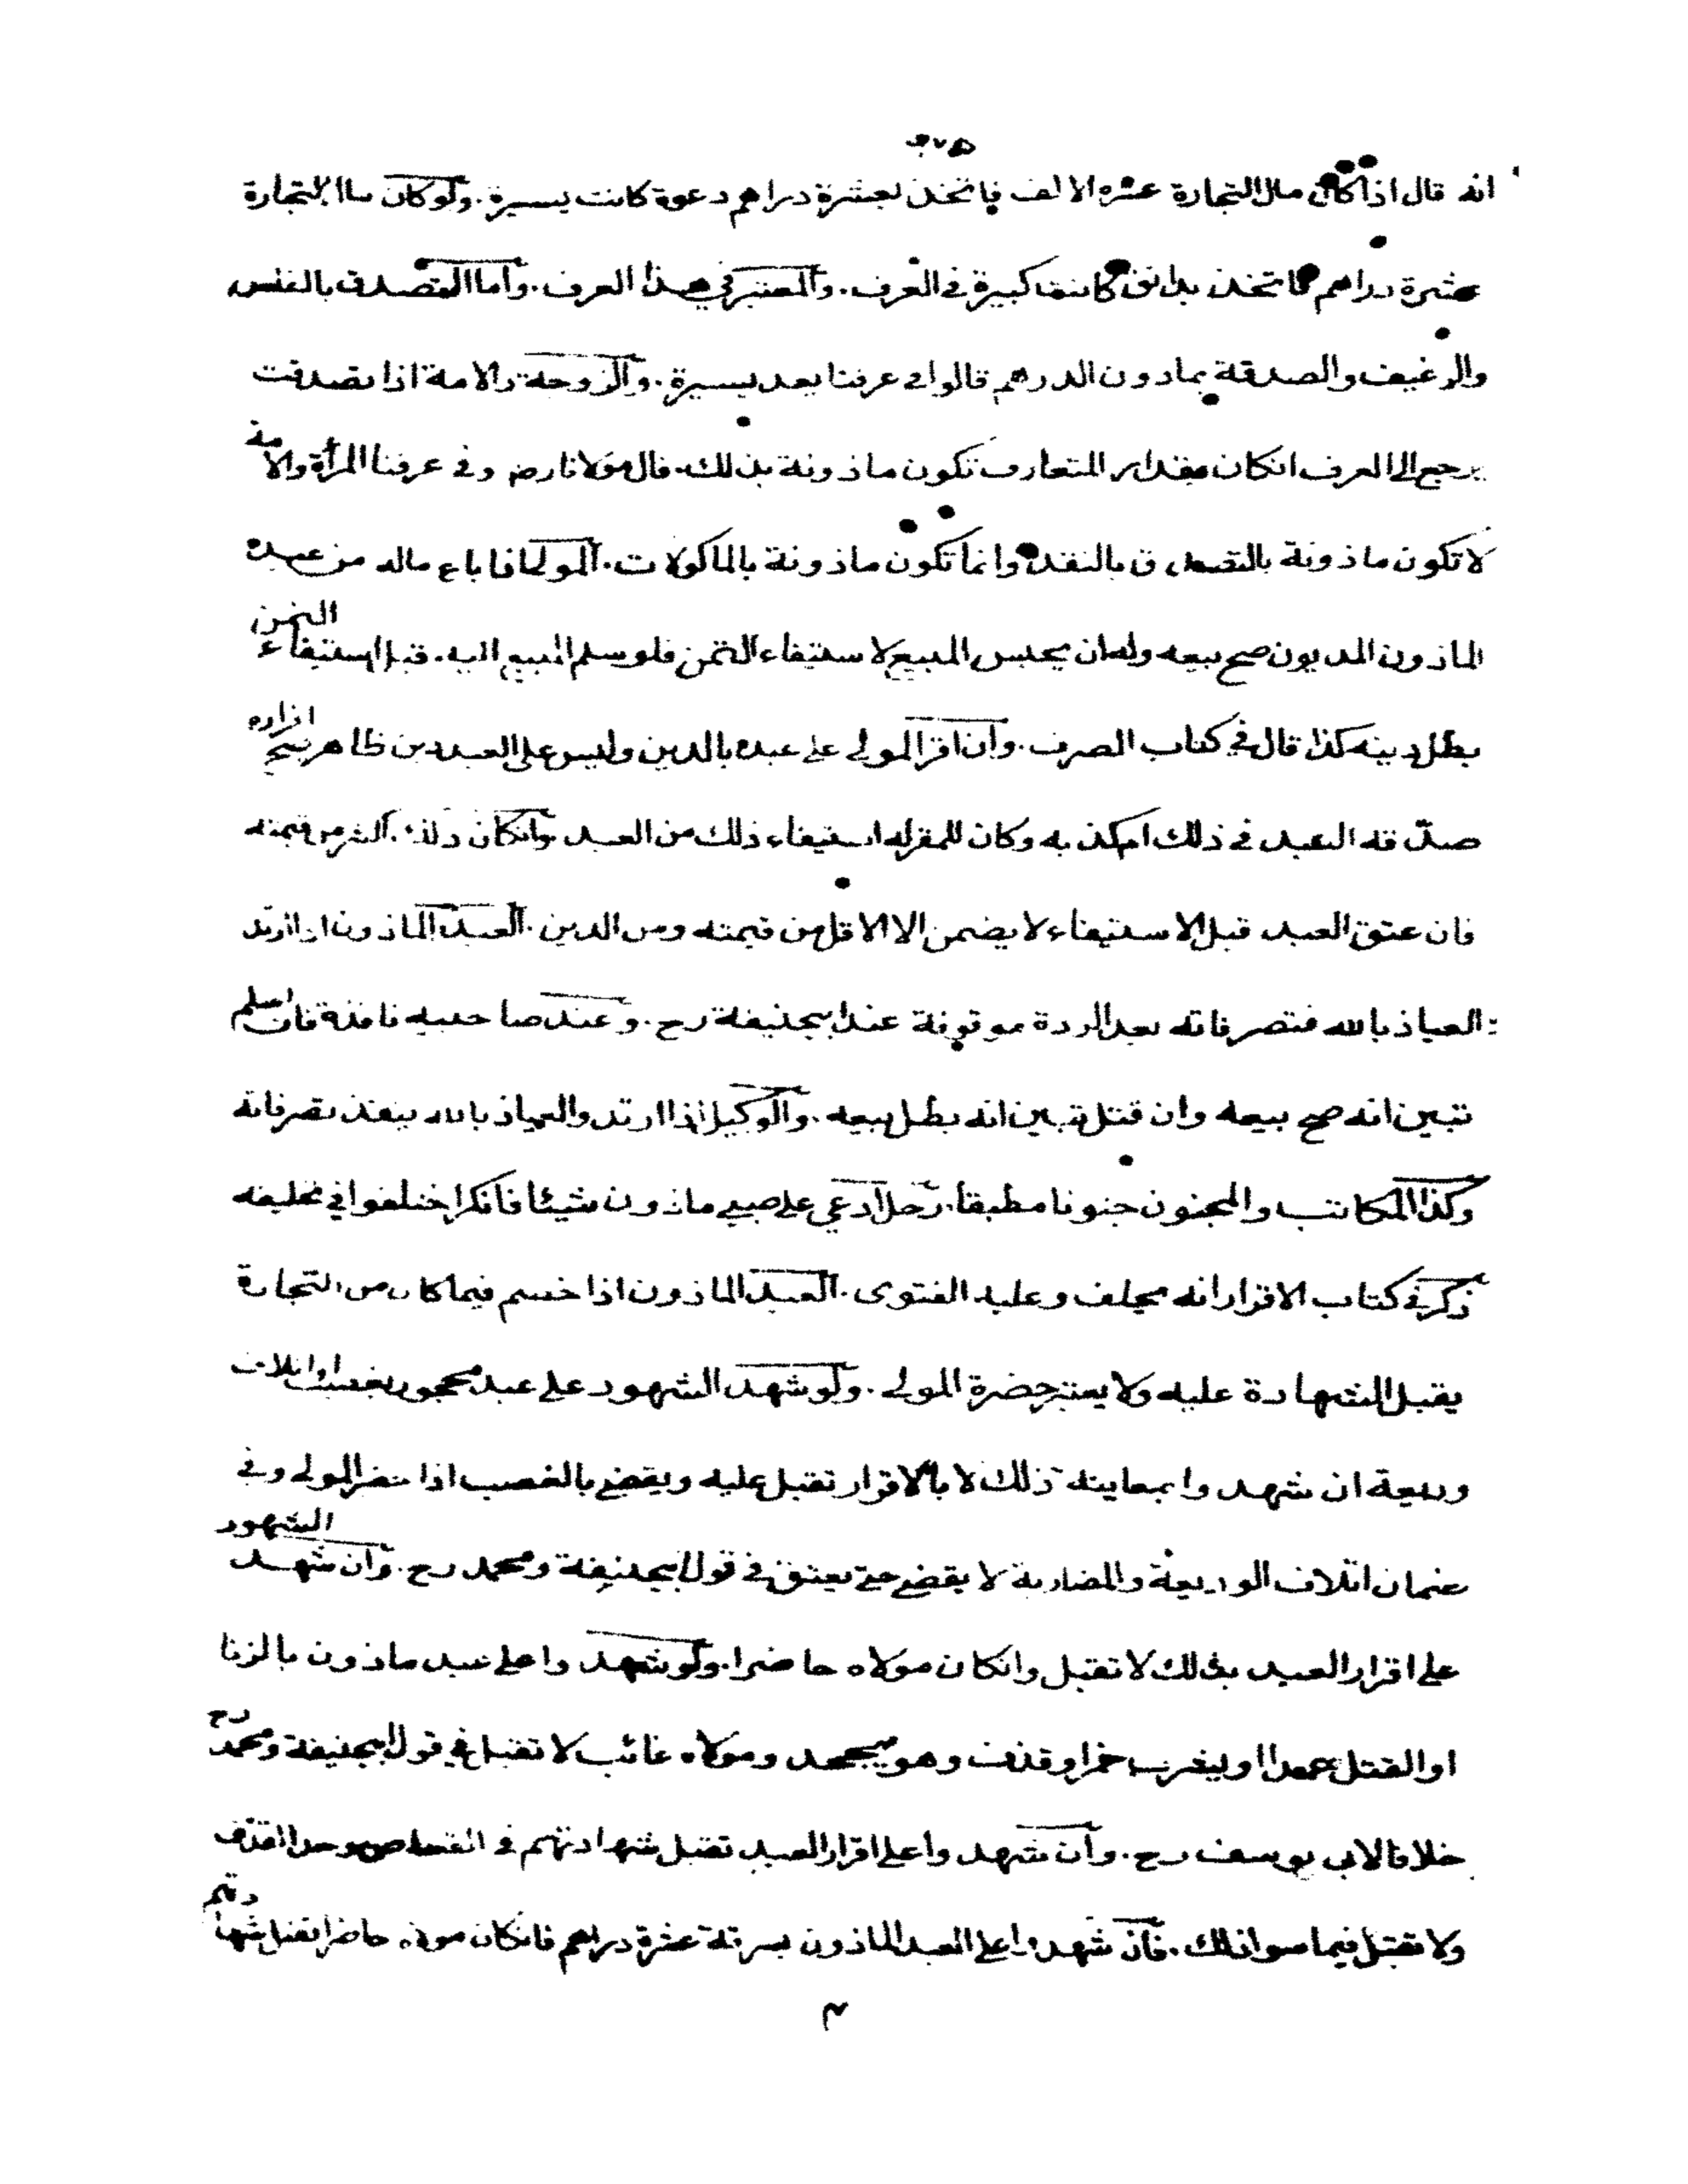 انه قال اذا كان مال التجارة عشرة الالف فاتخذ بعشرة دراهم دعوة كانت يسيرة. ولو كان مال التجارة
عشرة دراهم فاتخذ بدانق كانت كبيرة في العرف. والمعتبر في هذا العرف. واما التصدق بالفلس
والرغيف والصدقة بمادون الدرهم قالوا في عرفنا يعد يسيرة. والزوجة والامة اذا تصدقت
يرجع الى العرف انكان مقدار المتعارف تكون ماذونة بذلك. قال مولانا رض وفي عرفنا المرأة والامة
لا تكون ماذونة بالتصدق بالنقد وانما تكون ماذونة بالماكولات. المولى اذا باع ماله من عبده
الماذون المديون صح بيعه وله ان يحبس المبيع لاستيفاء الثمن فلو سلم المبيع اليه. قبل استيفاء الثمن
بطل دينه كذا قال في كتاب الصرف. وان اقر المولى على عبده بالدين وليس على العبد دين ظاهر صح اقراره
صدّقه العبد في ذلك ام كذبه وكان للمقر له استيفاء ذلك من العبد وانكان ذلك اكثر من قيمته
فان عتق العبد قبل الاستيفاء لا يضمن الا الاقل من قيمته ومن الدين. العبد الماذون اذا ارتد
العياذ بالله فتصرفاته بعد الردة موقوفة عند ابيحنيفة رح. وعند صاحبيه نافذة فان اسلم
تبين انه صح بيعه وان قتل تبين انه بطل بيعه. والوكيل اذا ارتد والعياذ بالله ينفذ تصرفاته
وكذا المكاتب والمجنون جنونا مطبقا. رجل ادعى على صبي ماذون شيئا فانكر اختلفوا في تحليفه
ذكر في كتاب الاقرار انه يحلف وعليه الفتوى. العبد الماذون اذا خسم فيما كان من التجارة
يقبل الشهادة عليه ولا يعتبر حضرة المولى. ولو شهد الشهود على عبد محجور بغصب او اتلاف
وديعة ان شهدوا بمعاينة ذلك لا بالاقرار تقبل عليه ويقضى بالغصب اذا حضر المولى وفي
ضمان اتلاف الوديعة والمضاربة لا يقضى حتى يعتق في قول ابيحنيفة ومحمد رح. وان شهد الشهود
على اقرار العبد بذلك لا تقبل وانكان مولاه حاضرا. ولو شهدوا على عبد ماذون بالزنا
او القتل عمدا او بشرب خمر او قذف وهو يجحد ومولاه غائب لا تقبل في قول ابيحنيفة ومحمد رح
خلافا لابي يوسف رح. وان شهدوا على اقرار العبد تقبل شهادتهم في القصاص وحد القذف
ولا تقبل فيما سوا ذلك. فان شهدوا على العبد الماذون بسرقة عشرة دراهم فانكان مولاه حاضرا تقبل شهادتهم